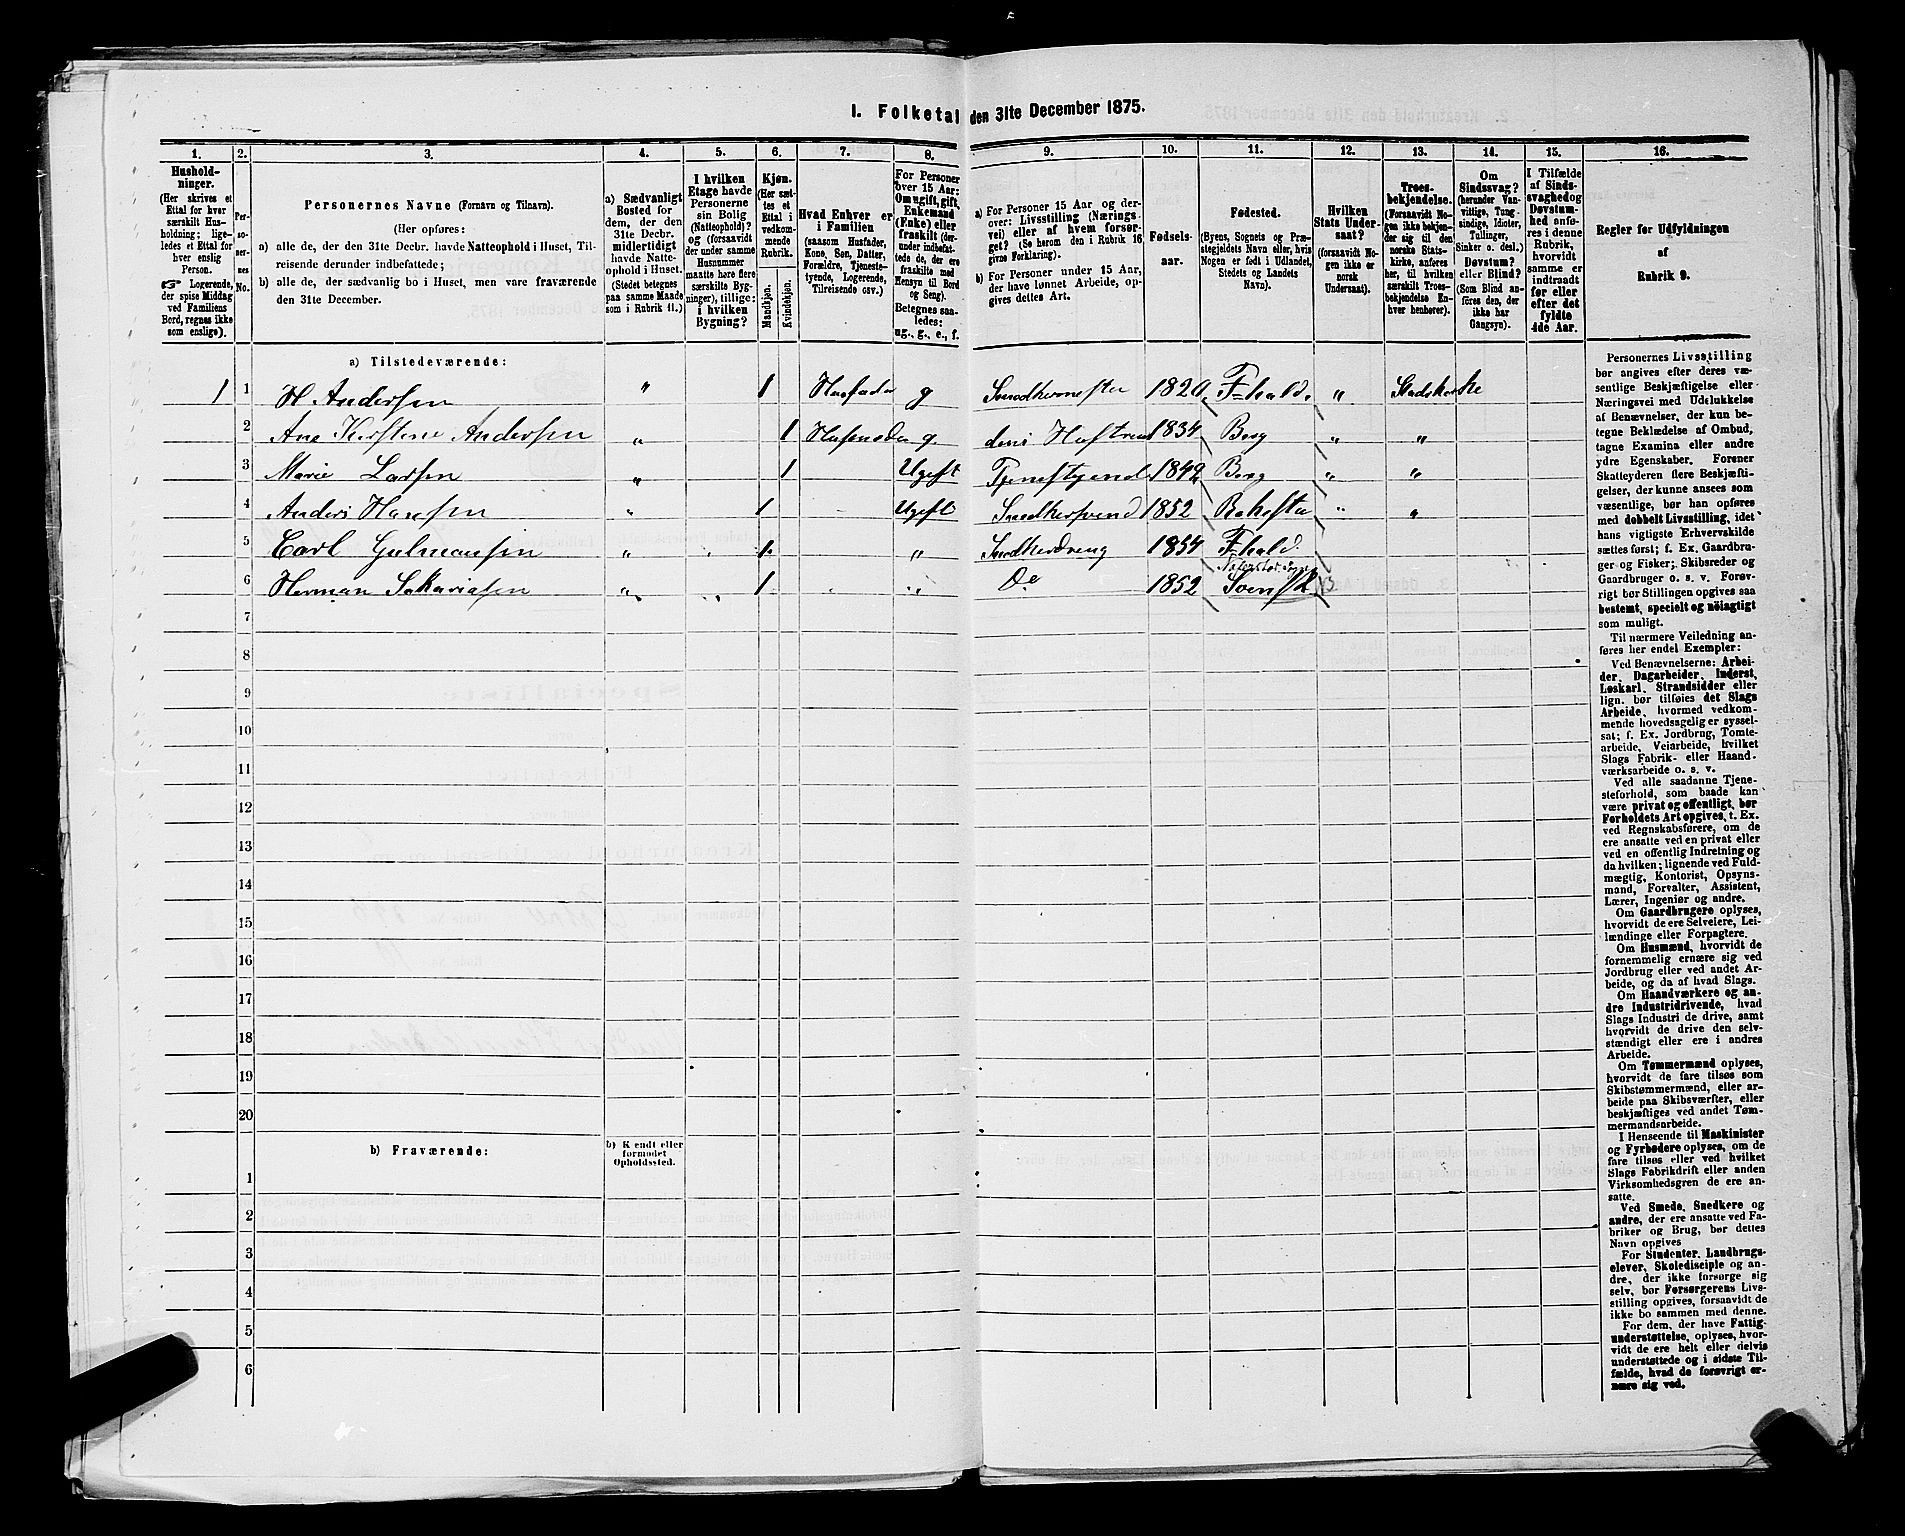 I. Folketal den 31te December 1875.
1. 2. 3. 4. 5. 6. 7. 8. 9. 10. 11. 12. 13. 14. 15. 16.
Hushold-
ninger.
(Her skrives et
Ettal for hver
særskilt Hus-
holdning; lige-
ledes et Ettal for
hver enslig
Person.
Logerende,
der spise Middag
ved Familiens
Bord, regnes ikke
som enslige).
Per-
so-
ner-
nes
No.
Personernes Navne (Fornavn og Tilnavn).
(Her opføres:
a) alle de, der den 31te Decbr. havde Natteophold i Huset, Til-
reisende derunder indbefattede;
b) alle de, der sædvanlig bo i Huset, men vare fraværende
den 31te December.
a) Sædvanligt
Bosted for
dem, der den
31te Decbr.
midlertidigt
havde Natte-
ophold i Huset.
(Stedet betegnes
paa samme Maade
som i Rubrik 11.)
I hvilken
Etage havde
Personerne
sin Bolig
(Natteophold)?
og (forsaavidt
der under samme
Husnummer
maatte høre flere
særskilte Byg-
ninger), tillige:
i hvilken
Bygning?
Kjøn.
(Her sæt-
tes et
Ettal i
vedkom-
mende
Rubrik.
Mandkjøn.
Kvindekjøn.
Hvad Enhver er
i Familien
(saasom Husfader,
Kone, Søn, Datter,
Forældre, Tjeneste-
tyende, Logerende,
Tilreisende osv.)
For Personer
over 15 Aar:
Om ugift, gift,
Enkemand
(Enke) eller
fraskilt (der-
under indbefat-
tede de, der ere
fraskilte med
Hensyn til Bord
og Seng).
Betegnes saa-
ledes:
ug., g., e., f.
a) For Personer 15 Aar og der-
over: Livsstilling (Nærings-
vei) eller af hvem forsør-
get? (Se herom den i Rubrik 16
givne Forklaring).
b) For Personer under 15 Aar,
der have lønnet Arbeide, op-
gives dettes Art.
Fødsels-
aar.
Fødested.
(Byens, Sognets og Præ-
stegjeldets Navn eller, hvis
Nogen er født i Udlandet,
Stedets og Landets
Navn).
Hvilken
Stats Under-
saat?
(forsaavidt No-
gen ikke er
norsk
Undersaat).
Troes-
bekjendelse.
(Forsaavidt No-
gen ikke bekjen-
der sig til den
norske Stats-
kirke, anføres
her, til hvilken
særskilt Troes-
bekjendelse En-
hver henhører).
Om
Sindssvag?
(herunder Van-
vittige, Tung-
sindige, Idioter,
Tullinger,
Sinker o. desl.)
Døvstum?
eller Blind?
(Som Blind an-
føres den, der
ikke har
Gangsyn).
I Tilfælde
af Sinds-
svaghed og
Døvstum-
hed anfø-
res i denne
Rubrik,
hvorvidt
samme er
indtraadt
før eller
efter det
fyldte
4de Aar.
Regler for Udfyldningen
af
Rubrik 9.
a) Tilstedeværende:
1 1 H Andersen " 1 Husfader g Snedkermester 1820 F=hald. " Stadskirke
2 Ane Kirstine Andersen " 1 g. 1834 Berg " "
3 Marie Larsen " 1 Ugift Tjenestyende 1849 Berg " "
4 Anders Hansen " 1 Ugift Snedkersvend 1852 " "
5 Carl Gulmansen " " 1. " Snedkerdreng 1854 F=hald.
6 Herman Sakariasen " " 1 " Do 1852 Svensk
7
8
9
10
11
12
13
14
15
16
17
18
19
20
b) Fraværende:
b) Kjendt eller
formodet
Opholdssted.
1
2
3
4
5
6
Personernes Livsstilling
bør angives efter deres væ-
sentlige Beskjæftigelse eller
Næringsvei med Udelukkelse
af Benævnelser, der kun be-
tegne Beklædelse af Ombud,
tagne Examina eller andre
ydre Egenskaber. Forener
Skatteyderen flere Beskjæfti-
gelser, der kunne ansees som
væsentlige, bør han opføres
med dobbelt Livsstilling, idet
hans vigtigste Erhvervskilde
sættes først; f. Ex. Gaardbru-
ger og Fisker; Skibsreder og
Gaardbruger o. s. v. Forøv-
rigt bør Stillingen opgives saa
bestemt, specielt og nøiagtigt
som muligt.
Til nærmere Veiledning an-
føres her endel Exempler:
Ved Benævnelserne: Arbei-
der, Dagarbeider, Inderst,
Løskarl, Strandsidder eller
lign. bør tilføies det Slags
Arbeide, hvormed vedkom-
mende hovedsagelig er syssel-
sat; f. Ex. Jordbrug, Tomte-
arbeide, Veiarbeide, hvilket
Slags Fabrik- eller Haand-
værksarbeide o. s. v.
Ved alle saadanne Tjene-
steforhold, som baade kan
være privat og offentligt, bør
Forholdets Art opgives, t. Ex.
ved Regnskabsførere, om de
ere ansatte ved en privat eller
ved en offentlig Indretning og
da hvilken; lignende ved Fuld-
mægtig, Kontorist, Opsyns-
mand, Forvalter, Assistent,
Lærer, Ingeniør og andre.
Om Gaardbrugere oplyses,
hvorvidt de ere Selveiere, Lei-
lændinge eller Forpagtere.
Om Husmænd, hvorvidt de
fornemmelig ernære sig ved
Jordbrug eller ved andet Ar-
beide, og da af hvad Slags.
Om Haandværkere og an-
dre Industridrivende, hvad
Slags Industri de drive, samt
hvorvidt de drive den selv-
stændigt eller ere i andres
Arbeide.
Om Tømmermænd oplyses,
hvorvidt de fare tilsøs som
Skibstømmermænd, eller ar-
beide paa Skibsværfter, eller
beskjæftiges ved andet Tøm-
mermandsarbeide.
I Henseende til Maskinister
og Fyrbødere oplyses, om de
fare tilsøs eller ved hvilket
Slags Fabrikdrift eller anden
Virksomhedsgren de ere an-
satte.
Ved Smede, Snedkere og
andre, der ere ansatte ved Fa-
briker og Brug, bør dettes
Navn opgives
For Studenter, Landbrugs-
elever, Skoledisciple og an-
dre, der ikke forsørge sig
selv, bør Forsørgerens Livs-
stilling opgives, forsaavidt de
ikke bo sammen med denne.
For dem, der have Fattig-
understøttelse, oplyses, hvor-
vidt de ere helt eller delvis
understøttede og i sidste Til-
fælde, hvad de forøvrigt er-
nære sig ved.